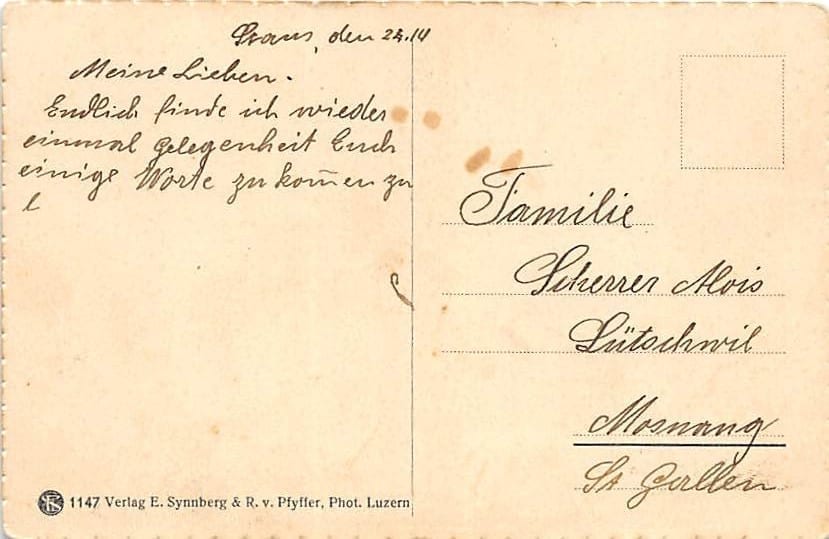 den 24.14
Meine Lieben.
Endlich finde ich wieder
einmal gelegenheit Euch
einige Worte zu kom̄en zu
l
Familie
Scherrer Alois
Lütschwil
Mosnang
St Gallen
1147 Verlag E. Synnberg & R. v. Pfyffer, Phot. Luzern